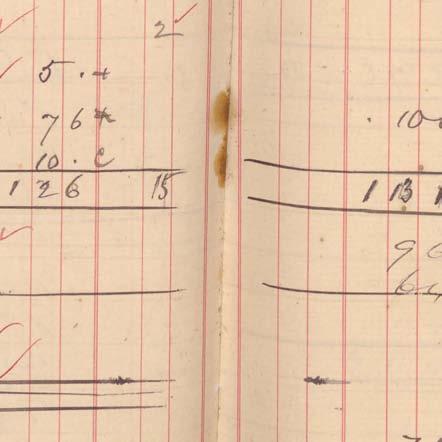 2
5 . +
76
10 . c
1 26 15
10
1 13 1
9
6